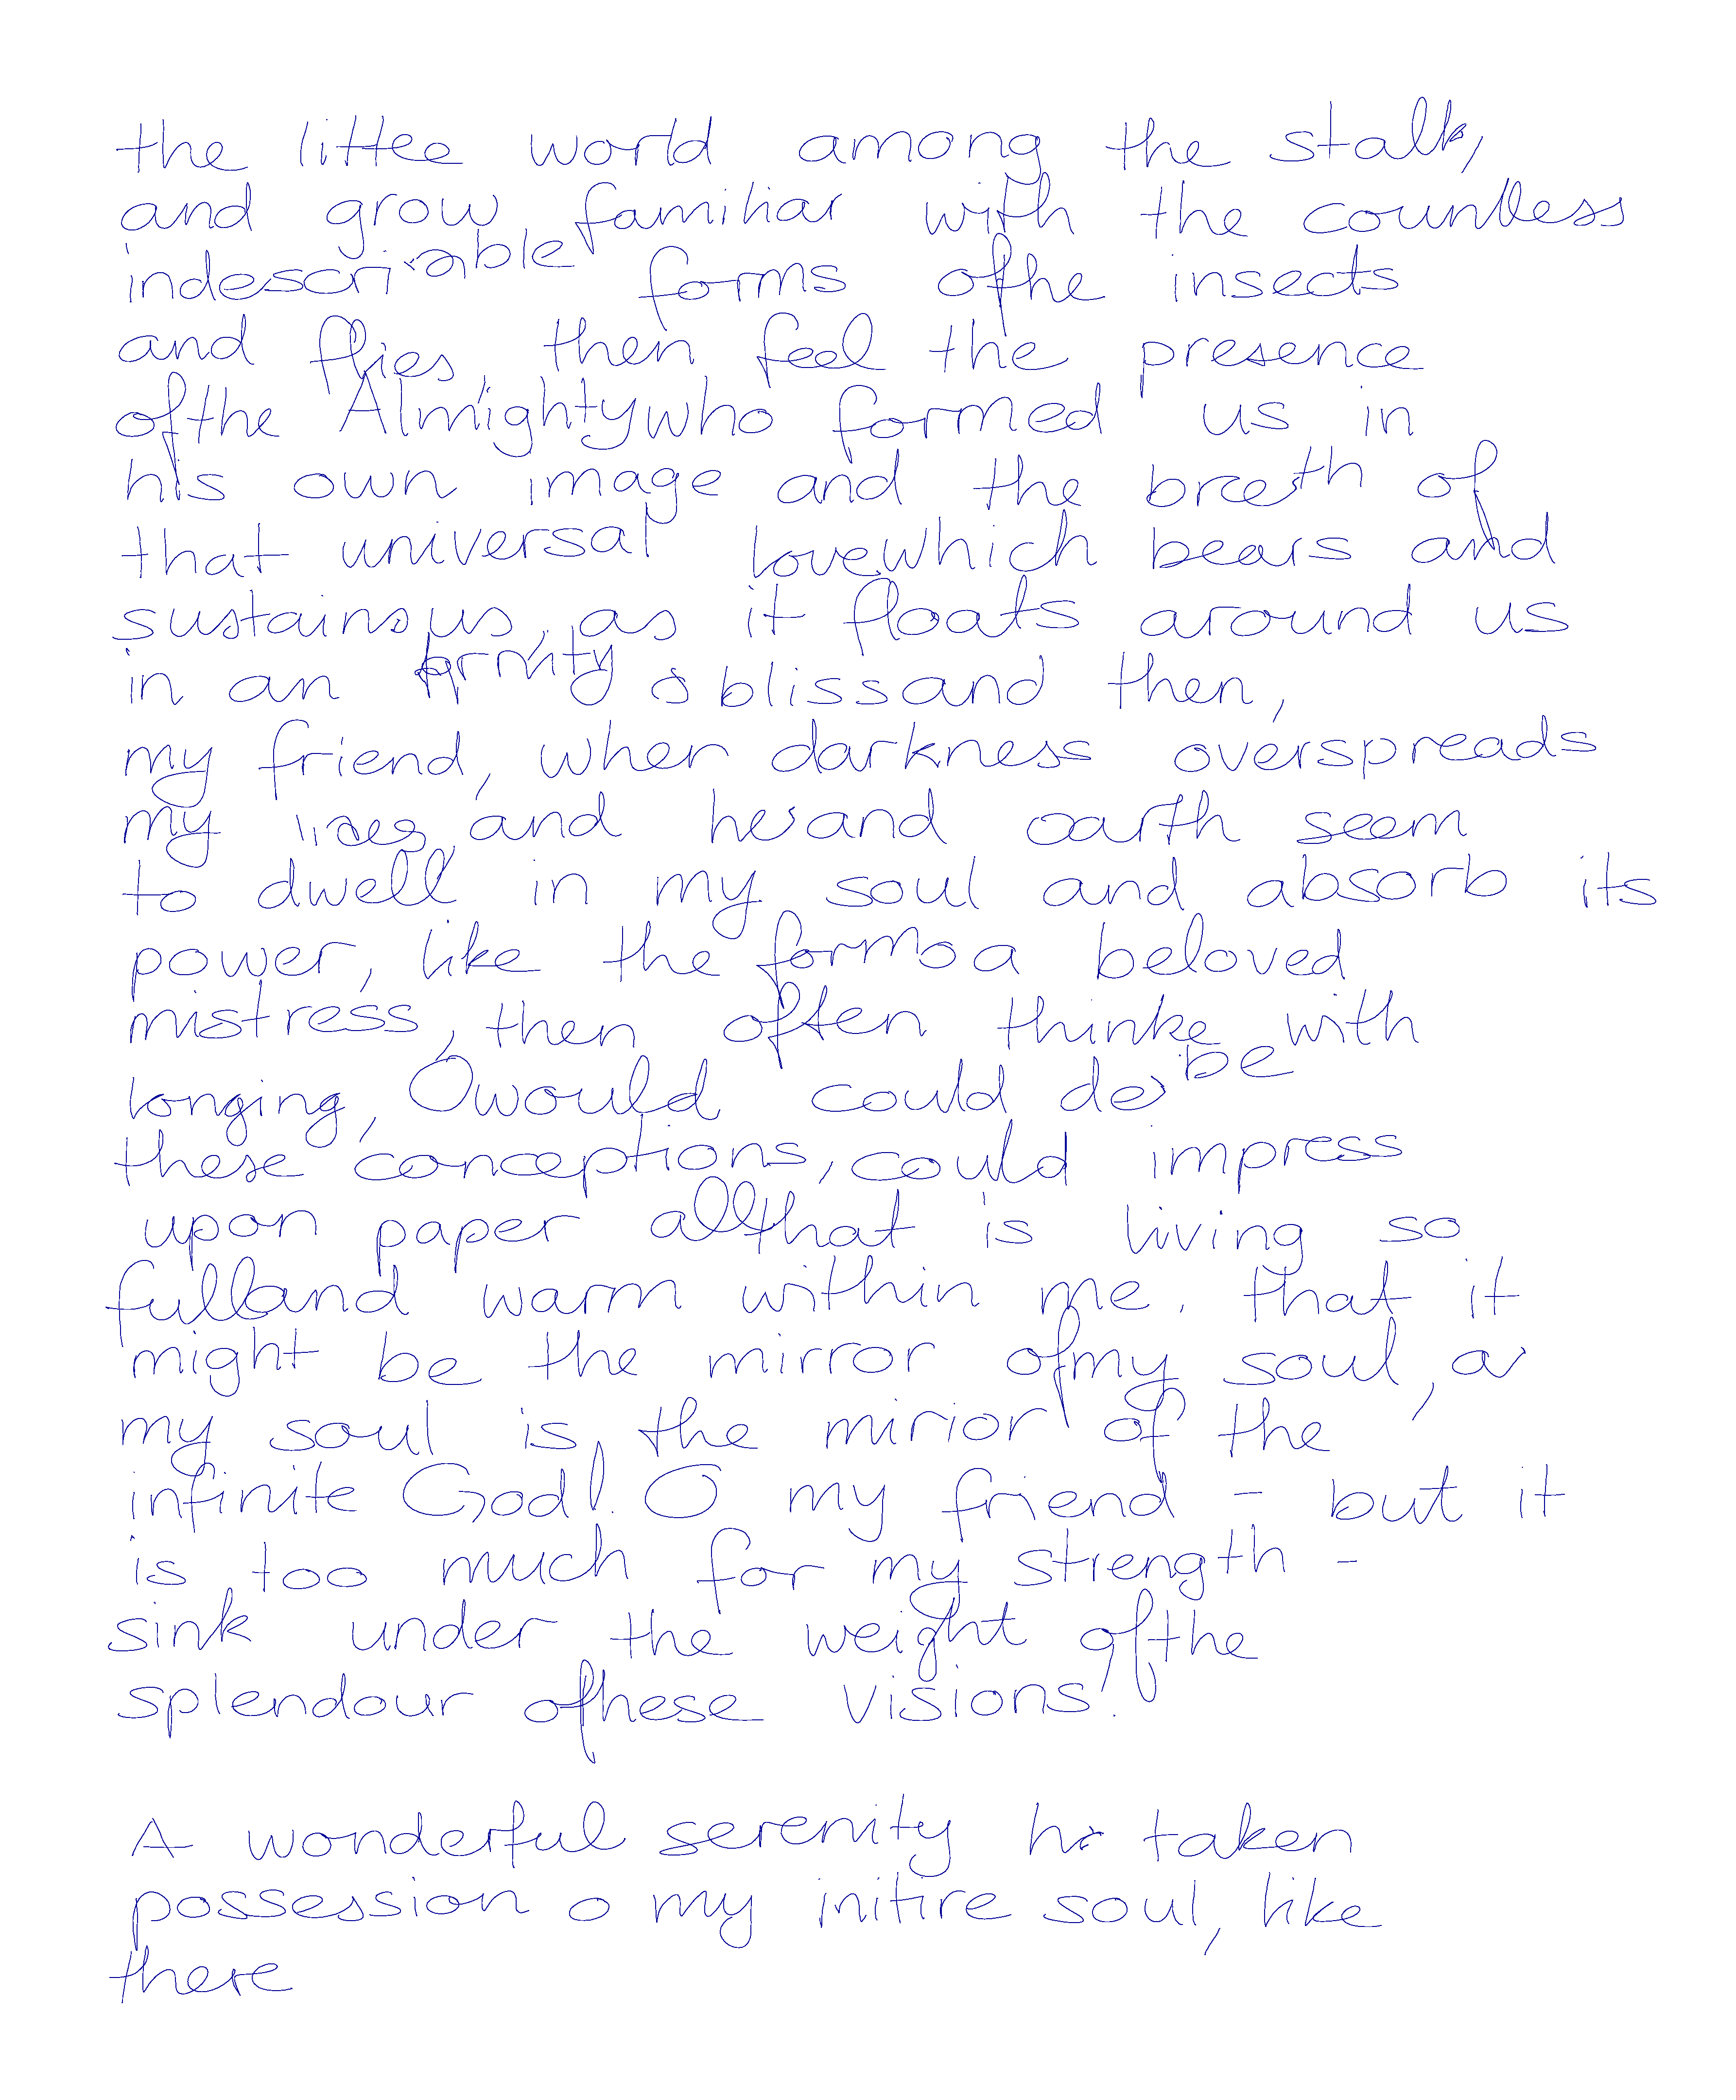 the little world among the stalk,
and grow familiar with the countless
indescriable forms ofhe insects
and flies, then feel the presence
ofthe Almightywho formed us in
his own image and the breath of
that universal lovewhich bears and
sustainsus, as it floats around us
in an blissand then,
my friend, when darkness overspreads
my and heand earth seem
to dwell in my soul and absorb its
power, like the formo a beloved
mistress, then often thinke with
longing, Owould could debe
these conceptions, could impress
upon paper allthat is living so
fulland warm within me. that it
might be the mirror ofmy soul, a
my soul is the mirior of the
infinite God!. O my friend - but it
is too much for my strength -
sink under the weight ofthe
splendour ofhese visions!
A wonderful serenity ha taken
possession o my initire soul, like
there